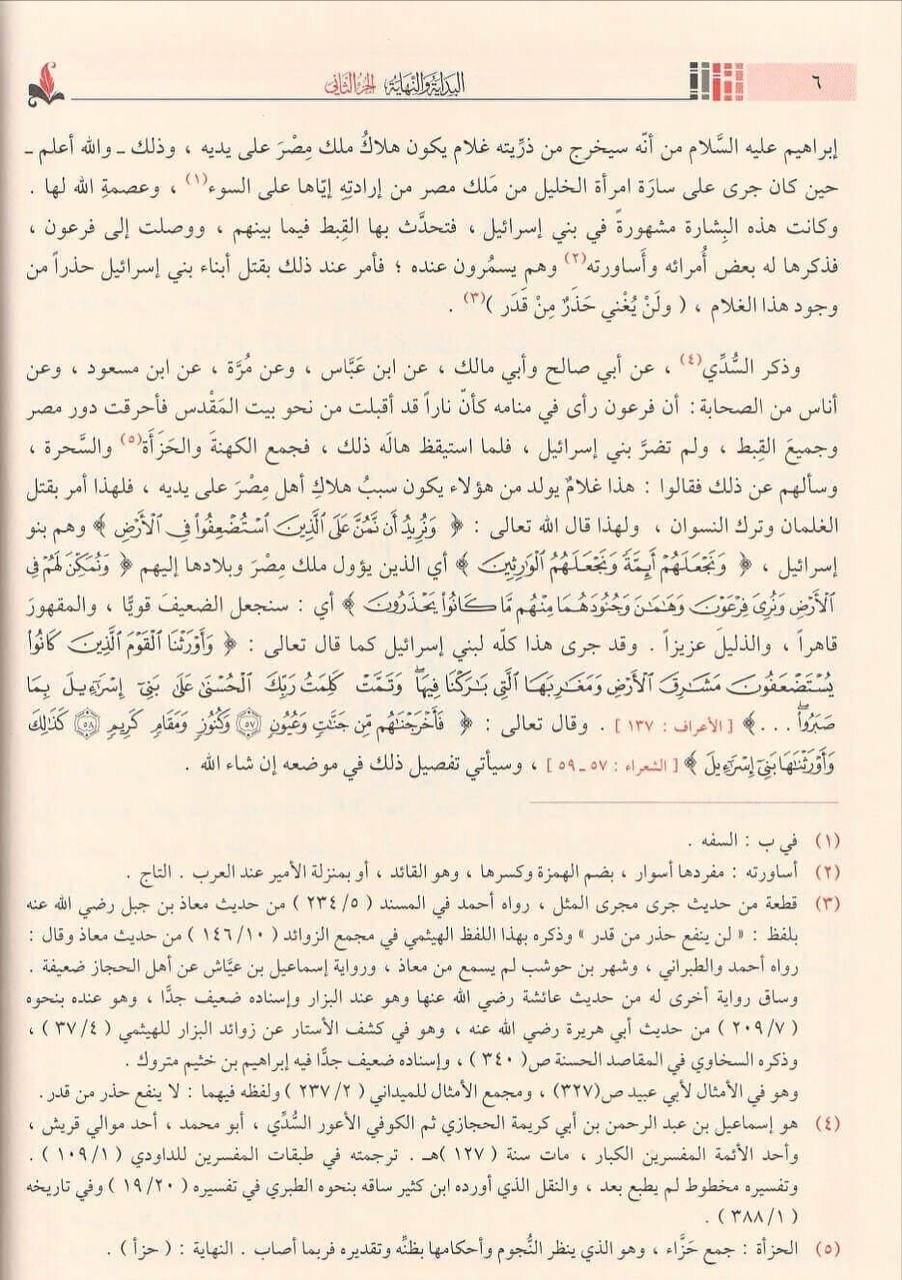 ٦
البداية والنهاية الجزء الثاني
إبراهيم عليه السَّلام من أنّه سيخرج من ذرِّيته غلام يكون هلاكُ ملك مِصْرَ على يديه ، وذلك ـ والله أعلم ـ
حين كان جرى على سارَة امرأة الخليل من مَلك مصر من إرادتِهِ إيّاها على السوء(١) ، وعصمةِ الله لها .
وكانت هذه البِشارة مشهورةً في بني إسرائيل ، فتحدَّث بها القِبط فيما بينهم ، ووصلت إلى فرعون ،
فذكرها له بعض أُمرائه وأَساورته(٢) وهم يسمُرون عنده ؛ فأمر عند ذلك بقتل أبناء بني إسرائيل حذراً من
وجود هذا الغلام ، ( ولَنْ يُغْني حَذَرٌ مِنْ قَدَر )(٣) .
وذكر السُّدِّي(٤) ، عن أبي صالح وأبي مالك ، عن ابن عَبَّاس ، وعن مُرَّة ، عن ابن مسعود ، وعن
أناس من الصحابة: أن فرعون رأى في منامه كأنّ ناراً قد أقبلت من نحو بيت المَقْدس فأحرقت دور مصر
وجميعَ القِبط ، ولم تضرَّ بني إسرائيل ، فلما استيقظ هالَه ذلك ، فجمع الكهنةَ والحَزَأَة(٥) والسَّحرة ،
وسألهم عن ذلك فقالوا : هذا غلامٌ يولد من هؤلاء يكون سببُ هلاكِ أهل مِصْرَ على يديه ، فلهذا أمر بقتل
الغلمان وترك النسوان ، ولهذا قال الله تعالى : ﴿ وَنُرِيدُ أَن نَّمُنَّ عَلَى ٱلَّذِينَ ٱسْتُضْعِفُوا۟ فِى ٱلْأَرْضِ ﴾ وهم بنو
إسرائيل ، ﴿ وَنَجْعَلَهُمْ أَئِمَّةً وَنَجْعَلَهُمُ ٱلْوَٰرِثِينَ ﴾ أي الذين يؤول ملك مِصْرَ وبلادها إليهم ﴿ وَنُمَكِّنَ لَهُمْ فِى
ٱلْأَرْضِ وَنُرِىَ فِرْعَوْنَ وَهَٰمَٰنَ وَجُنُودَهُمَا مِنْهُم مَّا كَانُوا۟ يَحْذَرُونَ ﴾ أي : سنجعل الضعيفَ قويًّا ، والمقهورَ
قاهراً ، والذليلَ عزيزاً . وقد جرى هذا كلّه لبني إسرائيل كما قال تعالى : ﴿ وَأَوْرَثْنَا ٱلْقَوْمَ ٱلَّذِينَ كَانُوا۟
يُسْتَضْعَفُونَ مَشَٰرِقَ ٱلْأَرْضِ وَمَغَٰرِبَهَا ٱلَّتِى بَٰرَكْنَا فِيهَا ۖ وَتَمَّتْ كَلِمَتُ رَبِّكَ ٱلْحُسْنَىٰ عَلَىٰ بَنِىٓ إِسْرَٰٓءِيلَ بِمَا
صَبَرُوا۟ ۖ . . . ﴾ [ الأعراف : ١٣٧ ] . وقال تعالى : ﴿ فَأَخْرَجْنَٰهُم مِّن جَنَّٰتٍ وَعُيُونٍ ۝٥٧ وَكُنُوزٍ وَمَقَامٍ كَرِيمٍ ۝٥٨ كَذَٰلِكَ
وَأَوْرَثْنَٰهَا بَنِىٓ إِسْرَٰٓءِيلَ ﴾ [ الشعراء : ٥٧ ـ ٥٩ ] ، وسيأتي تفصيل ذلك في موضعه إن شاء الله .
(١) في ب : السفه .
(٢) أساورته : مفردها أسوار ، بضم الهمزة وكسرها ، وهو القائد ، أو بمنزلة الأمير عند العرب . التاج .
(٣) قطعة من حديث جرى مجرى المثل ، رواه أحمد في المسند ( ٥/ ٢٣٤ ) من حديث معاذ بن جبل رضي الله عنه
بلفظ : « لن ينفع حذر من قدر » وذكره بهذا اللفظ الهيثمي في مجمع الزوائد ( ١٠/ ١٤٦ ) من حديث معاذ وقال :
رواه أحمد والطبراني ، وشهر بن حوشب لم يسمع من معاذ ، ورواية إسماعيل بن عيَّاش عن أهل الحجاز ضعيفة .
وساق رواية أخرى له من حديث عائشة رضي الله عنها وهو عند البزار وإسناده ضعيف جدًّا ، وهو عنده بنحوه
( ٧/ ٢٠٩ ) من حديث أبي هريرة رضي الله عنه ، وهو في كشف الأستار عن زوائد البزار للهيثمي ( ٤/ ٣٧ ) ،
وذكره السخاوي في المقاصد الحسنة ص( ٣٤٠ ) ، وإسناده ضعيف جدًّا فيه إبراهيم بن خثيم متروك .
وهو في الأمثال لأبي عبيد ص(٣٢٧) ، ومجمع الأمثال للميداني ( ٢/ ٢٣٧ ) ولفظه فيهما : لا ينفع حذر من قدر.
(٤) هو إسماعيل بن عبد الرحمن بن أبي كريمة الحجازي ثم الكوفي الأعور السُّدِّي ، أبو محمد ، أحد موالي قريش ،
وأحد الأئمة المفسرين الكبار ، مات سنة ( ١٢٧ )هـ . ترجمته في طبقات المفسرين للداودي ( ١/ ١٠٩ ) .
وتفسيره مخطوط لم يطبع بعد ، والنقل الذي أورده ابن كثير ساقه بنحوه الطبري في تفسيره ( ٢٠/ ١٩ ) وفي تاريخه
( ١/ ٣٨٨ ) .
(٥) الحزأة : جمع حَزَّاء ، وهو الذي ينظر النُّجوم وأحكامها بظنِّه وتقديره فربما أصاب . النهاية : ( حزأ ) .